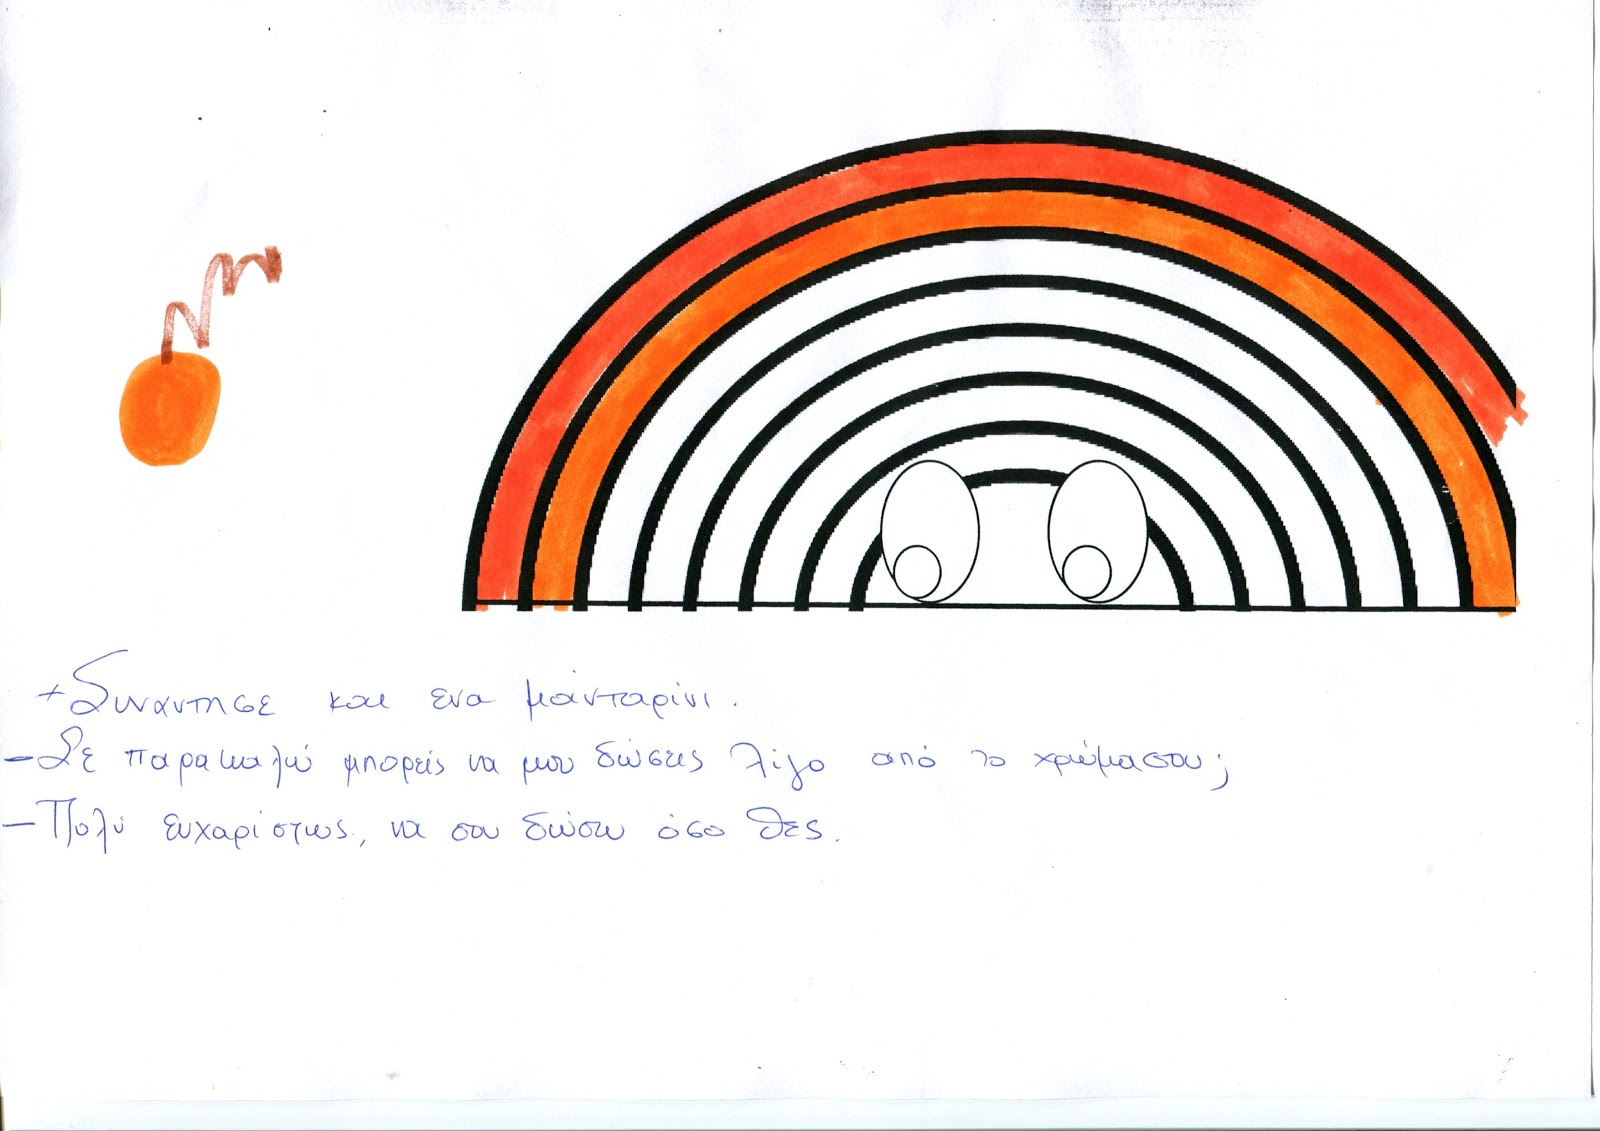 +Συνάντησε και ενα μάνταρίνι.
-Σε παρακαλώ μπορείς να μου δώσεις λίγο από το χρώμα σου;
-Πολύ ευχαρίστως, να σου δώσω όσο θες.